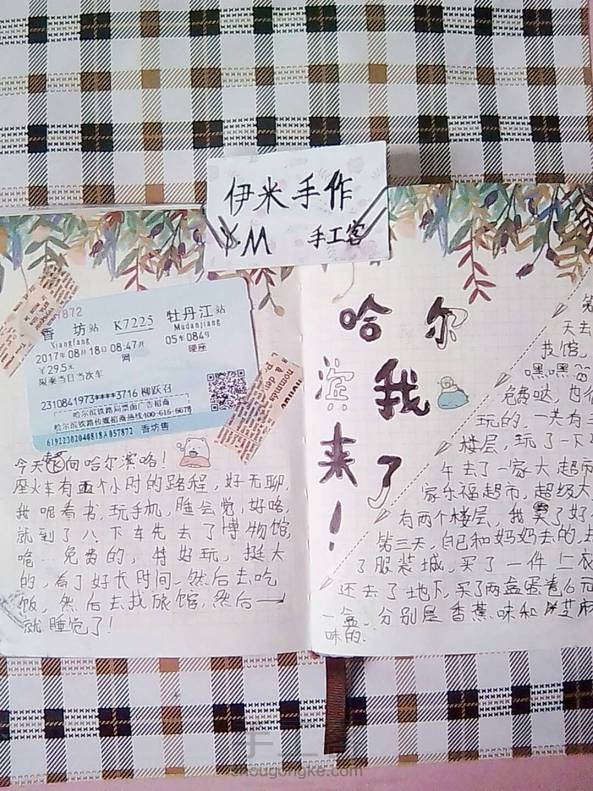 伊米手作
YM 手工客
香坊站 K7225 牡丹江站
Xiangfang Mudanjiang
2017年08月18日08:47开 05车084号
¥29.5元 网 硬座
限乘当日当次车
2310841973****3716
哈尔滨铁路局票面广告招商
哈尔滨铁路传媒招商热线400-616-6678
香坊售
今天向哈尔滨咯！
座火车有五个小时的路程，好无聊，
我呢看书，玩手机，睡会觉，好咯，
就到了八下车先去了博物馆，
哈 免费的，特好玩，挺大
的，看了好长时间，然后去吃
饭，然后去找旅馆，然后
就睡觉了！
哈尔
滨我
来了
！
第
天去
技馆，
嘿嘿
免费哒，也
玩的，一共有三
楼层，玩了一下
午去了一家大超市
家乐福超市，超级大
有两个楼层，我买了好
第三天，自己和奶奶去的，去
了服装城，买了一件上衣
还去了地下，买了两盒蛋卷6元
一盒，分别是香蕉味和芝麻
味的
shougongke.com